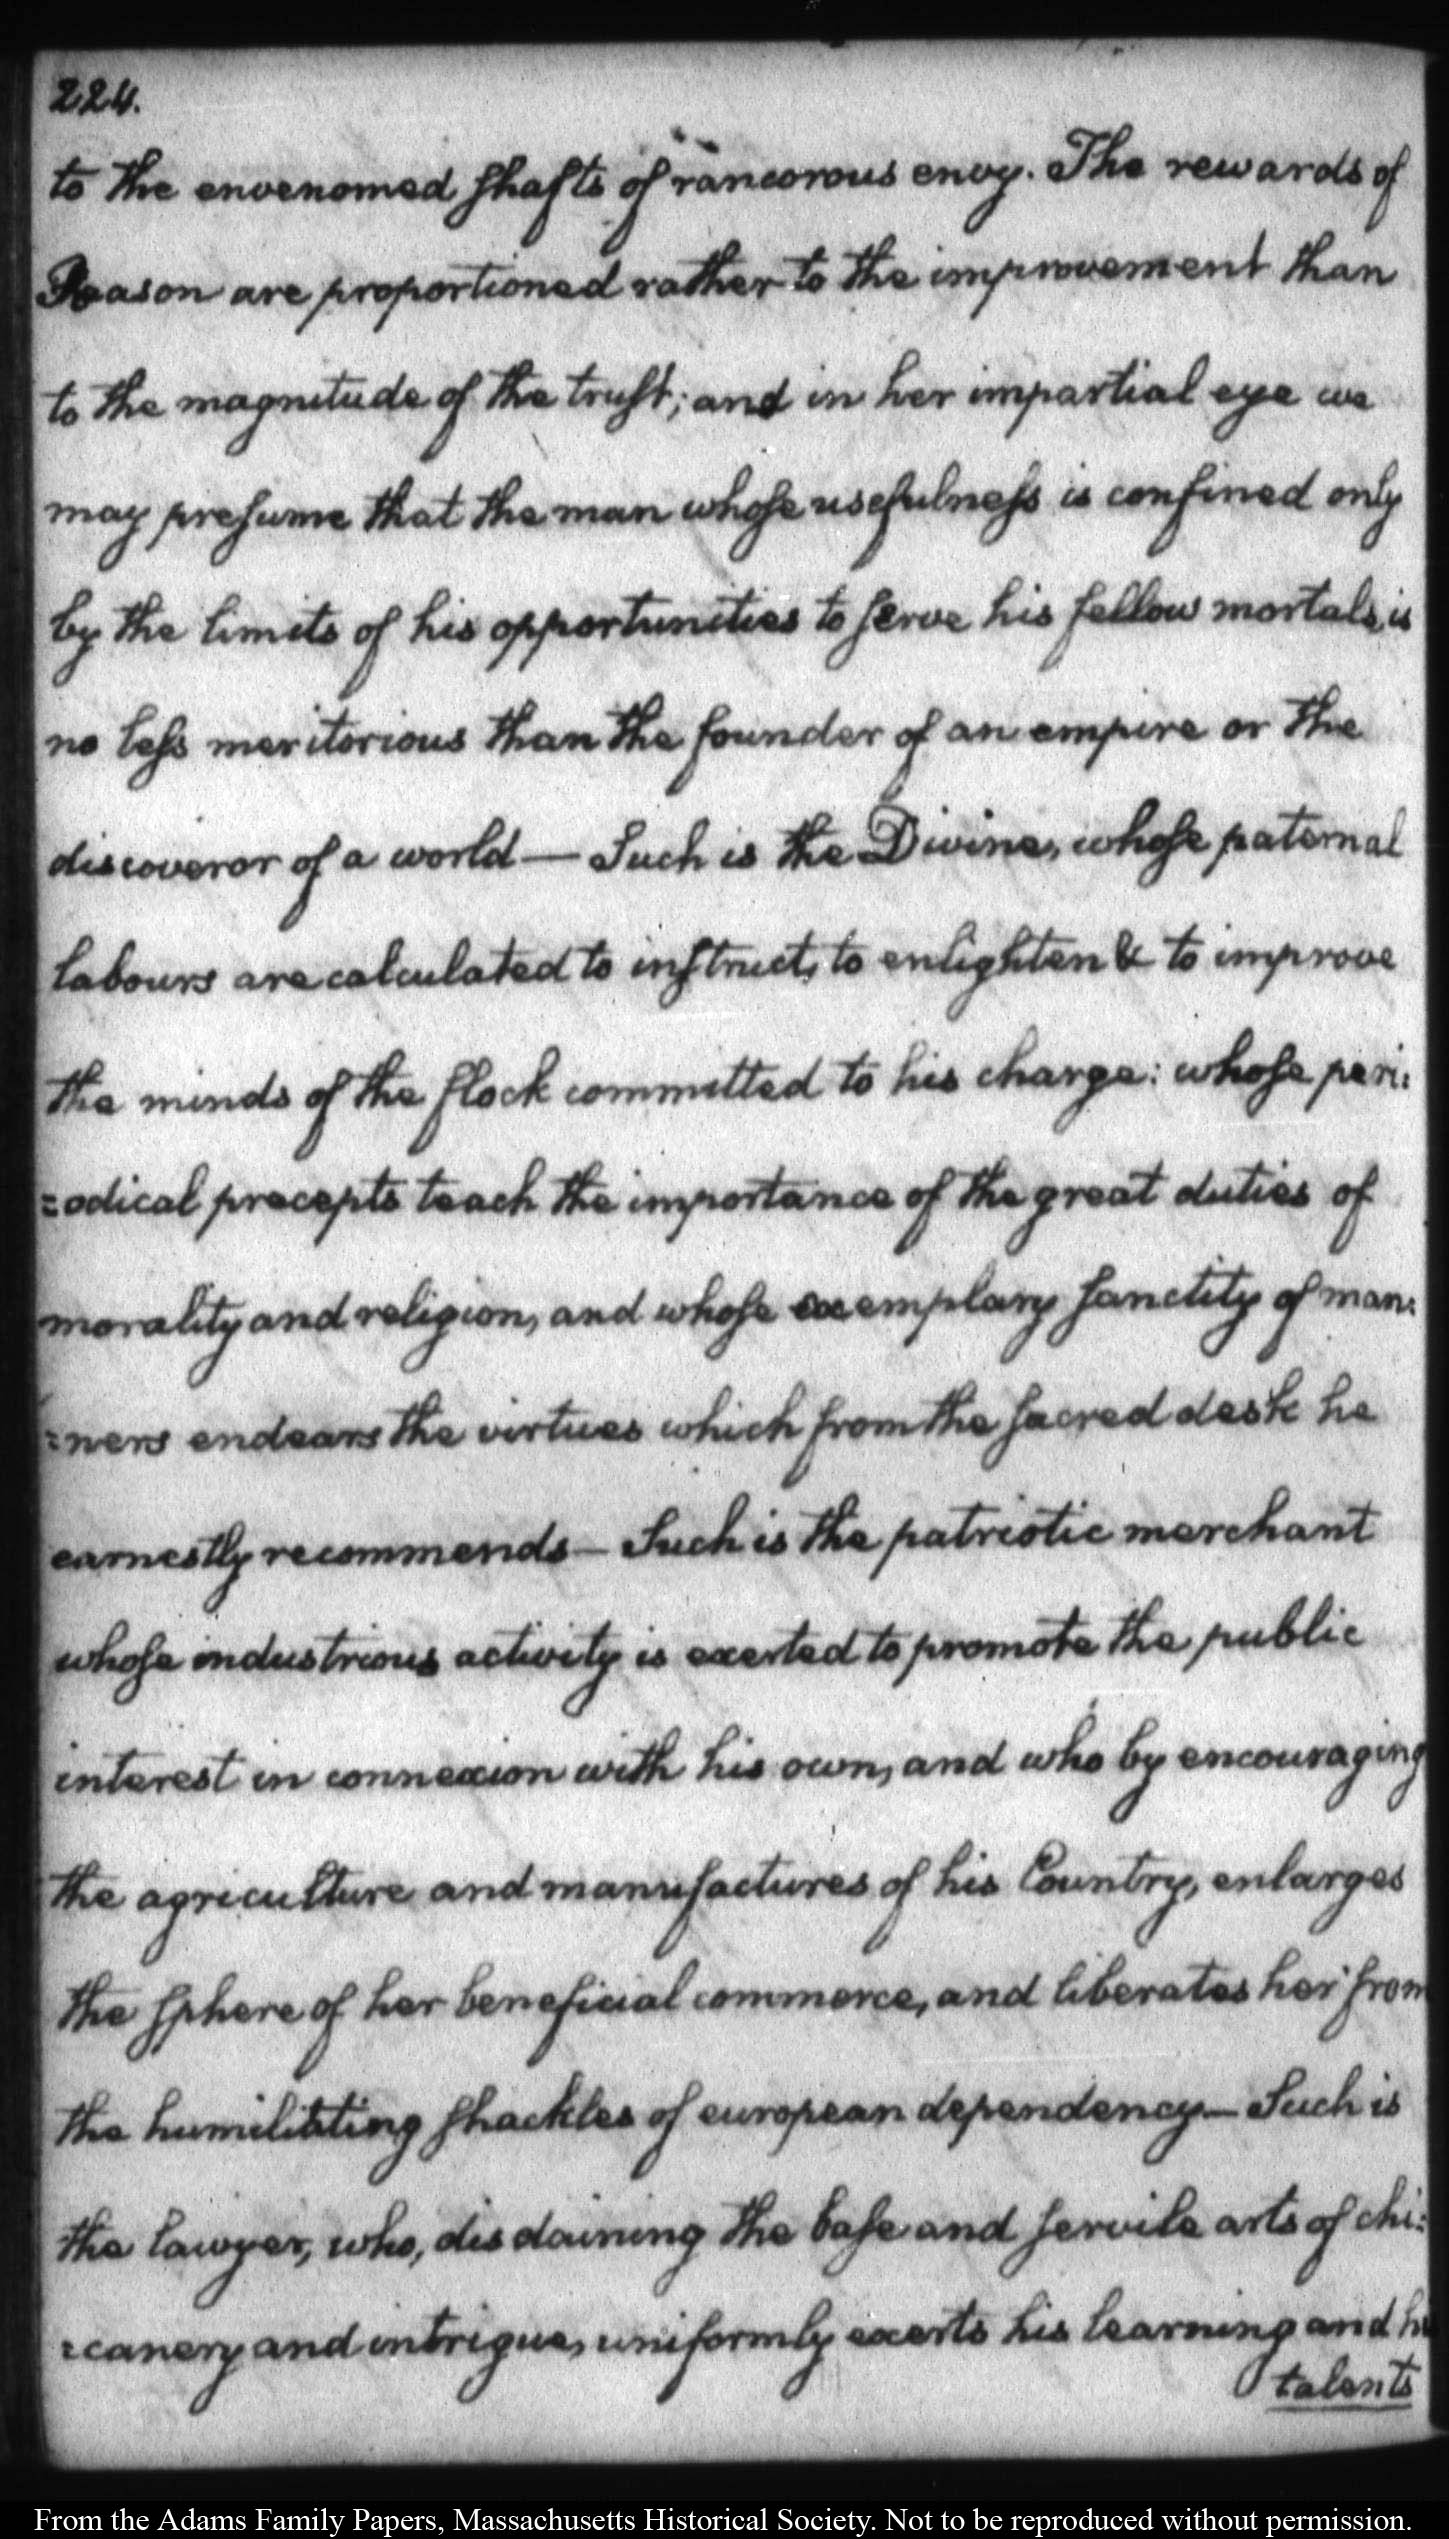 224.
to the envenomed shafts of rancorous envy. The rewards of
Reason are proportioned rather to the improvement than
to the magnitude of the trust; and in her impartial eye we
may presume that the man whose usefulness is confined only
by the limits of his opportunities to serve his fellow mortals, is
no less meritorious than the founder of an empire or the
discoveror of a world — Such is the Divine, whose paternal
labours are calculated to instruct, to enlighten & to improve
the minds of the flock committed to his charge: whose peri:
=odical precepts teach the importance of the great duties of
morality and religion, and whose exemplary sanctity of man:
=ners endears the virtues which from the sacred desk he
earnestly recommends — Such is the patriotic merchant
whose industrious activity is exerted to promote the public
interest in connexion with his own, and who by encouraging
the agriculture and manufactures of his Country, enlarges
the sphere of her beneficial commerce, and liberates her from
the humiliating shackles of european dependency — Such is
the lawyer, who, disdaining the base and servile arts of chi:
=canery and intrigue, uniformly exerts his learning and his
talents
From the Adams Family Papers, Massachusetts Historical Society. Not to be reproduced without permission.